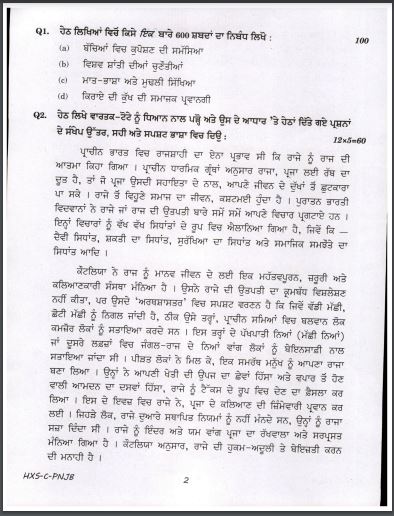 Q1. ਹੇਠ ਲਿਖਿਆਂ ਵਿਚੋਂ ਕਿਸੇ ਇਕ ਬਾਰੇ 600 ਸ਼ਬਦਾਂ ਦਾ ਨਿਬੰਧ ਲਿਖੋ : 100
(a) ਬੱਚਿਆਂ ਵਿਚ ਕੁਪੋਸ਼ਣ ਦੀ ਸਮੱਸਿਆ
(b) ਵਿਸ਼ਵ ਸ਼ਾਂਤੀ ਦੀਆਂ ਚੁਣੌਤੀਆਂ
(c) ਮਾਤ-ਭਾਸ਼ਾ ਅਤੇ ਮੁਢਲੀ ਸਿੱਖਿਆ
(d) ਕਿਰਾਏ ਦੀ ਕੁੱਖ ਦੀ ਸਮਾਜਕ ਪ੍ਰਵਾਨਗੀ
Q2. ਹੇਠ ਲਿਖੇ ਵਾਰਤਕ-ਟੋਟੇ ਨੂੰ ਧਿਆਨ ਨਾਲ ਪੜ੍ਹੋ ਅਤੇ ਉਸ ਦੇ ਆਧਾਰ 'ਤੇ ਹੇਠਾਂ ਦਿੱਤੇ ਗਏ ਪ੍ਰਸ਼ਨਾਂ
ਦੇ ਸੰਖੇਪ ਉੱਤਰ, ਸਹੀ ਅਤੇ ਸਪਸ਼ਟ ਭਾਸ਼ਾ ਵਿਚ ਦਿਉ : 12×5=60
ਪ੍ਰਾਚੀਨ ਭਾਰਤ ਵਿਚ ਰਾਜਸ਼ਾਹੀ ਦਾ ਏਨਾ ਪ੍ਰਭਾਵ ਸੀ ਕਿ ਰਾਜੇ ਨੂੰ ਰਾਜ ਦੀ
ਆਤਮਾ ਕਿਹਾ ਗਿਆ । ਪ੍ਰਾਚੀਨ ਧਾਰਮਿਕ ਗ੍ਰੰਥਾਂ ਅਨੁਸਾਰ ਰਾਜਾ, ਪ੍ਰਜਾ ਲਈ ਰੱਬ ਦਾ
ਦੂਤ ਹੈ, ਤਾਂ ਜੋ ਪ੍ਰਜਾ ਉਸਦੀ ਸਹਾਇਤਾ ਦੇ ਨਾਲ, ਆਪਣੇ ਜੀਵਨ ਦੇ ਦੁੱਖਾਂ ਤੋਂ ਛੁਟਕਾਰਾ
ਪਾ ਸਕੇ । ਰਾਜੇ ਤੋਂ ਵਿਹੂਣੇ ਸਮਾਜ ਦਾ ਜੀਵਨ, ਕਸ਼ਟਮਈ ਹੁੰਦਾ ਹੈ । ਪੁਰਾਤਨ ਭਾਰਤੀ
ਵਿਦਵਾਨਾਂ ਨੇ ਰਾਜੇ ਜਾਂ ਰਾਜ ਦੀ ਉਤਪਤੀ ਬਾਰੇ ਸਮੇਂ ਸਮੇਂ ਆਪਣੇ ਵਿਚਾਰ ਪ੍ਰਗਟਾਏ ਹਨ ।
ਇਨ੍ਹਾਂ ਵਿਚਾਰਾਂ ਨੂੰ ਵੱਖ ਵੱਖ ਸਿਧਾਂਤਾਂ ਦੇ ਰੂਪ ਵਿਚ ਐਲਾਨਿਆ ਗਿਆ ਹੈ, ਜਿਵੇਂ ਕਿ —
ਦੈਵੀ ਸਿਧਾਂਤ, ਸ਼ਕਤੀ ਦਾ ਸਿਧਾਂਤ, ਸੁਰੱਖਿਆ ਦਾ ਸਿਧਾਂਤ ਅਤੇ ਸਮਾਜਿਕ ਸਮਝੌਤੇ ਦਾ
ਸਿਧਾਂਤ ਆਦਿ ।
ਕੌਟਲਿਆ ਨੇ ਰਾਜ ਨੂੰ ਮਾਨਵ ਜੀਵਨ ਦੇ ਲਈ ਇਕ ਮਹੱਤਵਪੂਰਨ, ਜ਼ਰੂਰੀ ਅਤੇ
ਕਲਿਆਣਕਾਰੀ ਸੰਸਥਾ ਮੰਨਿਆ ਹੈ । ਉਸਨੇ ਰਾਜੇ ਦੀ ਉਤਪਤੀ ਦਾ ਕ੍ਰਮਬੱਧ ਵਿਸ਼ਲੇਸ਼ਣ
ਨਹੀਂ ਕੀਤਾ, ਪਰ ਉਸਦੇ 'ਅਰਥਸ਼ਾਸਤਰ' ਵਿਚ ਸਪਸ਼ਟ ਵਰਣਨ ਹੈ ਕਿ ਜਿਵੇਂ ਵੱਡੀ ਮੱਛੀ,
ਛੋਟੀ ਮੱਛੀ ਨੂੰ ਨਿਗਲ ਜਾਂਦੀ ਹੈ, ਠੀਕ ਉਸੇ ਤਰ੍ਹਾਂ, ਪ੍ਰਾਚੀਨ ਸਮਿਆਂ ਵਿਚ ਬਲਵਾਨ ਲੋਕ
ਕਮਜ਼ੋਰ ਲੋਕਾਂ ਨੂੰ ਸਤਾਇਆ ਕਰਦੇ ਸਨ । ਇਸ ਤਰ੍ਹਾਂ ਦੇ ਪੱਖਪਾਤੀ ਨਿਆਂ (ਮੱਛੀ ਨਿਆਂ)
ਜਾਂ ਦੂਸਰੇ ਲਫ਼ਜ਼ਾਂ ਵਿਚ ਜੰਗਲ-ਰਾਜ ਦੇ ਨਿਆਂ ਵਾਂਗ ਲੋਕਾਂ ਨੂੰ ਬੇਇਨਸਾਫ਼ੀ ਨਾਲ
ਸਤਾਇਆ ਜਾਂਦਾ ਸੀ । ਪੀੜਤ ਲੋਕਾਂ ਨੇ ਮਿਲ ਕੇ, ਇਕ ਸਮਰੱਥ ਮਨੁੱਖ ਨੂੰ ਆਪਣਾ ਰਾਜਾ
ਬਣਾ ਲਿਆ । ਉਨ੍ਹਾਂ ਨੇ ਆਪਣੀ ਖੇਤੀ ਦੀ ਉਪਜ ਦਾ ਛੇਵਾਂ ਹਿੱਸਾ ਅਤੇ ਵਪਾਰ ਤੋਂ ਹੋਣ
ਵਾਲੀ ਆਮਦਨ ਦਾ ਦਸਵਾਂ ਹਿੱਸਾ, ਰਾਜੇ ਨੂੰ ਟੈੱਕਸ ਦੇ ਰੂਪ ਵਿਚ ਦੇਣ ਦਾ ਫ਼ੈਸਲਾ ਕਰ
ਲਿਆ । ਇਸ ਦੇ ਇਵਜ਼ ਵਿਚ ਰਾਜੇ ਨੇ, ਪ੍ਰਜਾ ਦੇ ਕਲਿਆਣ ਦੀ ਜ਼ਿੰਮੇਵਾਰੀ ਪ੍ਰਵਾਨ ਕਰ
ਲਈ । ਜਿਹੜੇ ਲੋਕ, ਰਾਜੇ ਦੁਆਰੇ ਸਥਾਪਿਤ ਨਿਯਮਾਂ ਨੂੰ ਨਹੀਂ ਮੰਨਦੇ ਸਨ, ਉਨ੍ਹਾਂ ਨੂੰ ਰਾਜਾ
ਸਜ਼ਾ ਦਿੰਦਾ ਸੀ । ਰਾਜੇ ਨੂੰ ਇੰਦਰ ਅਤੇ ਯਮ ਵਾਂਗ ਪ੍ਰਜਾ ਦਾ ਰੱਖਵਾਲਾ ਅਤੇ ਸਰਪ੍ਰਸਤ
ਮੰਨਿਆ ਗਿਆ ਹੈ । ਕੌਟਲਿਆ ਅਨੁਸਾਰ, ਰਾਜੇ ਦੀ ਹੁਕਮ-ਅਦੂਲੀ ਤੇ ਬੇਇਜ਼ਤੀ ਕਰਨ
ਦੀ ਮਨਾਹੀ ਹੈ ।
HXS-C-PNJB 2